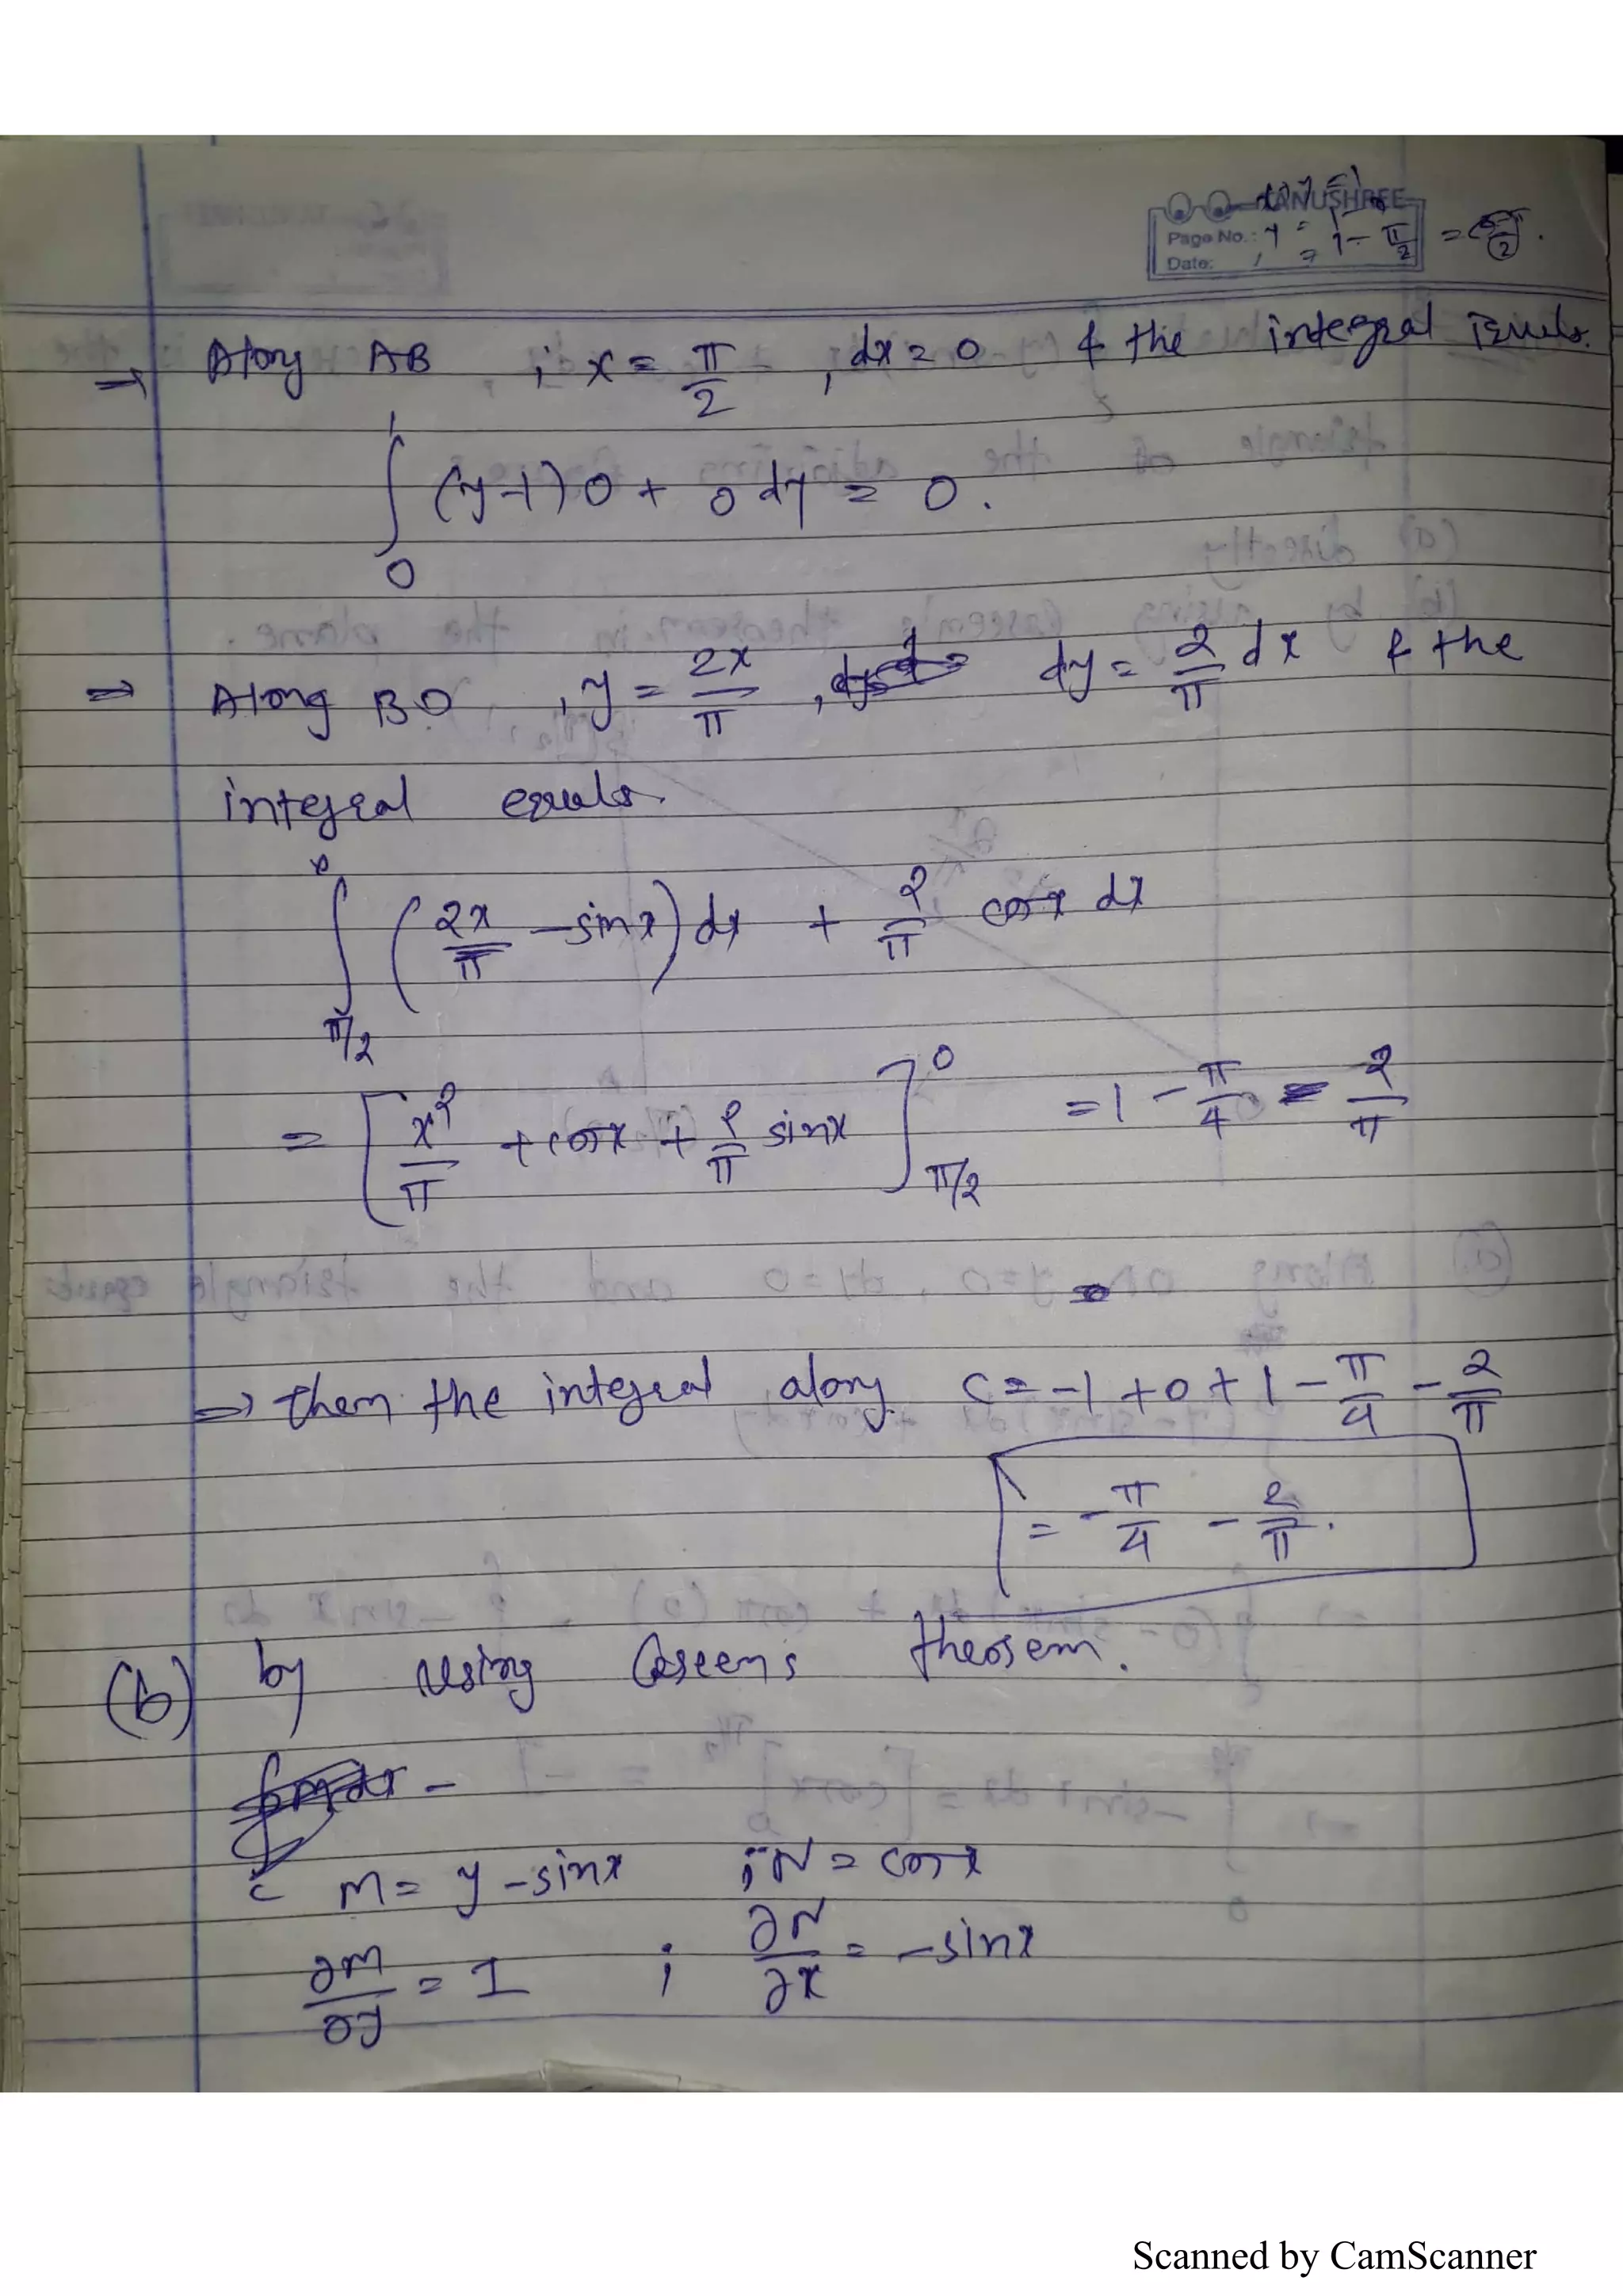 TANUSHREE
Page No.: y = 1 - π/2
Date:
→ Along AB ; x = π/2 , dx = 0 & the integral equals.
∫₀¹ (y-1) 0 + 0 dy = 0.
⇒ Along BO , y = 2x/π , dy = 2/π dx & the
integral equals.
∫_{π/2}^{0} (2x/π - sinx) dx + 2/π cosx dx
= [x²/π + cosx + 2/π sinx]_{π/2}^{0} = 1 - π/4 - 2/π
⇒ then the integral along C = -1 + 0 + 1 - π/4 - 2/π
= -π/4 - 2/π.
(b) by using Green's theorem.
M = y - sinx ; N = cosx
∂M/∂y = 1 ; ∂N/∂x = -sinx
Scanned by CamScanner